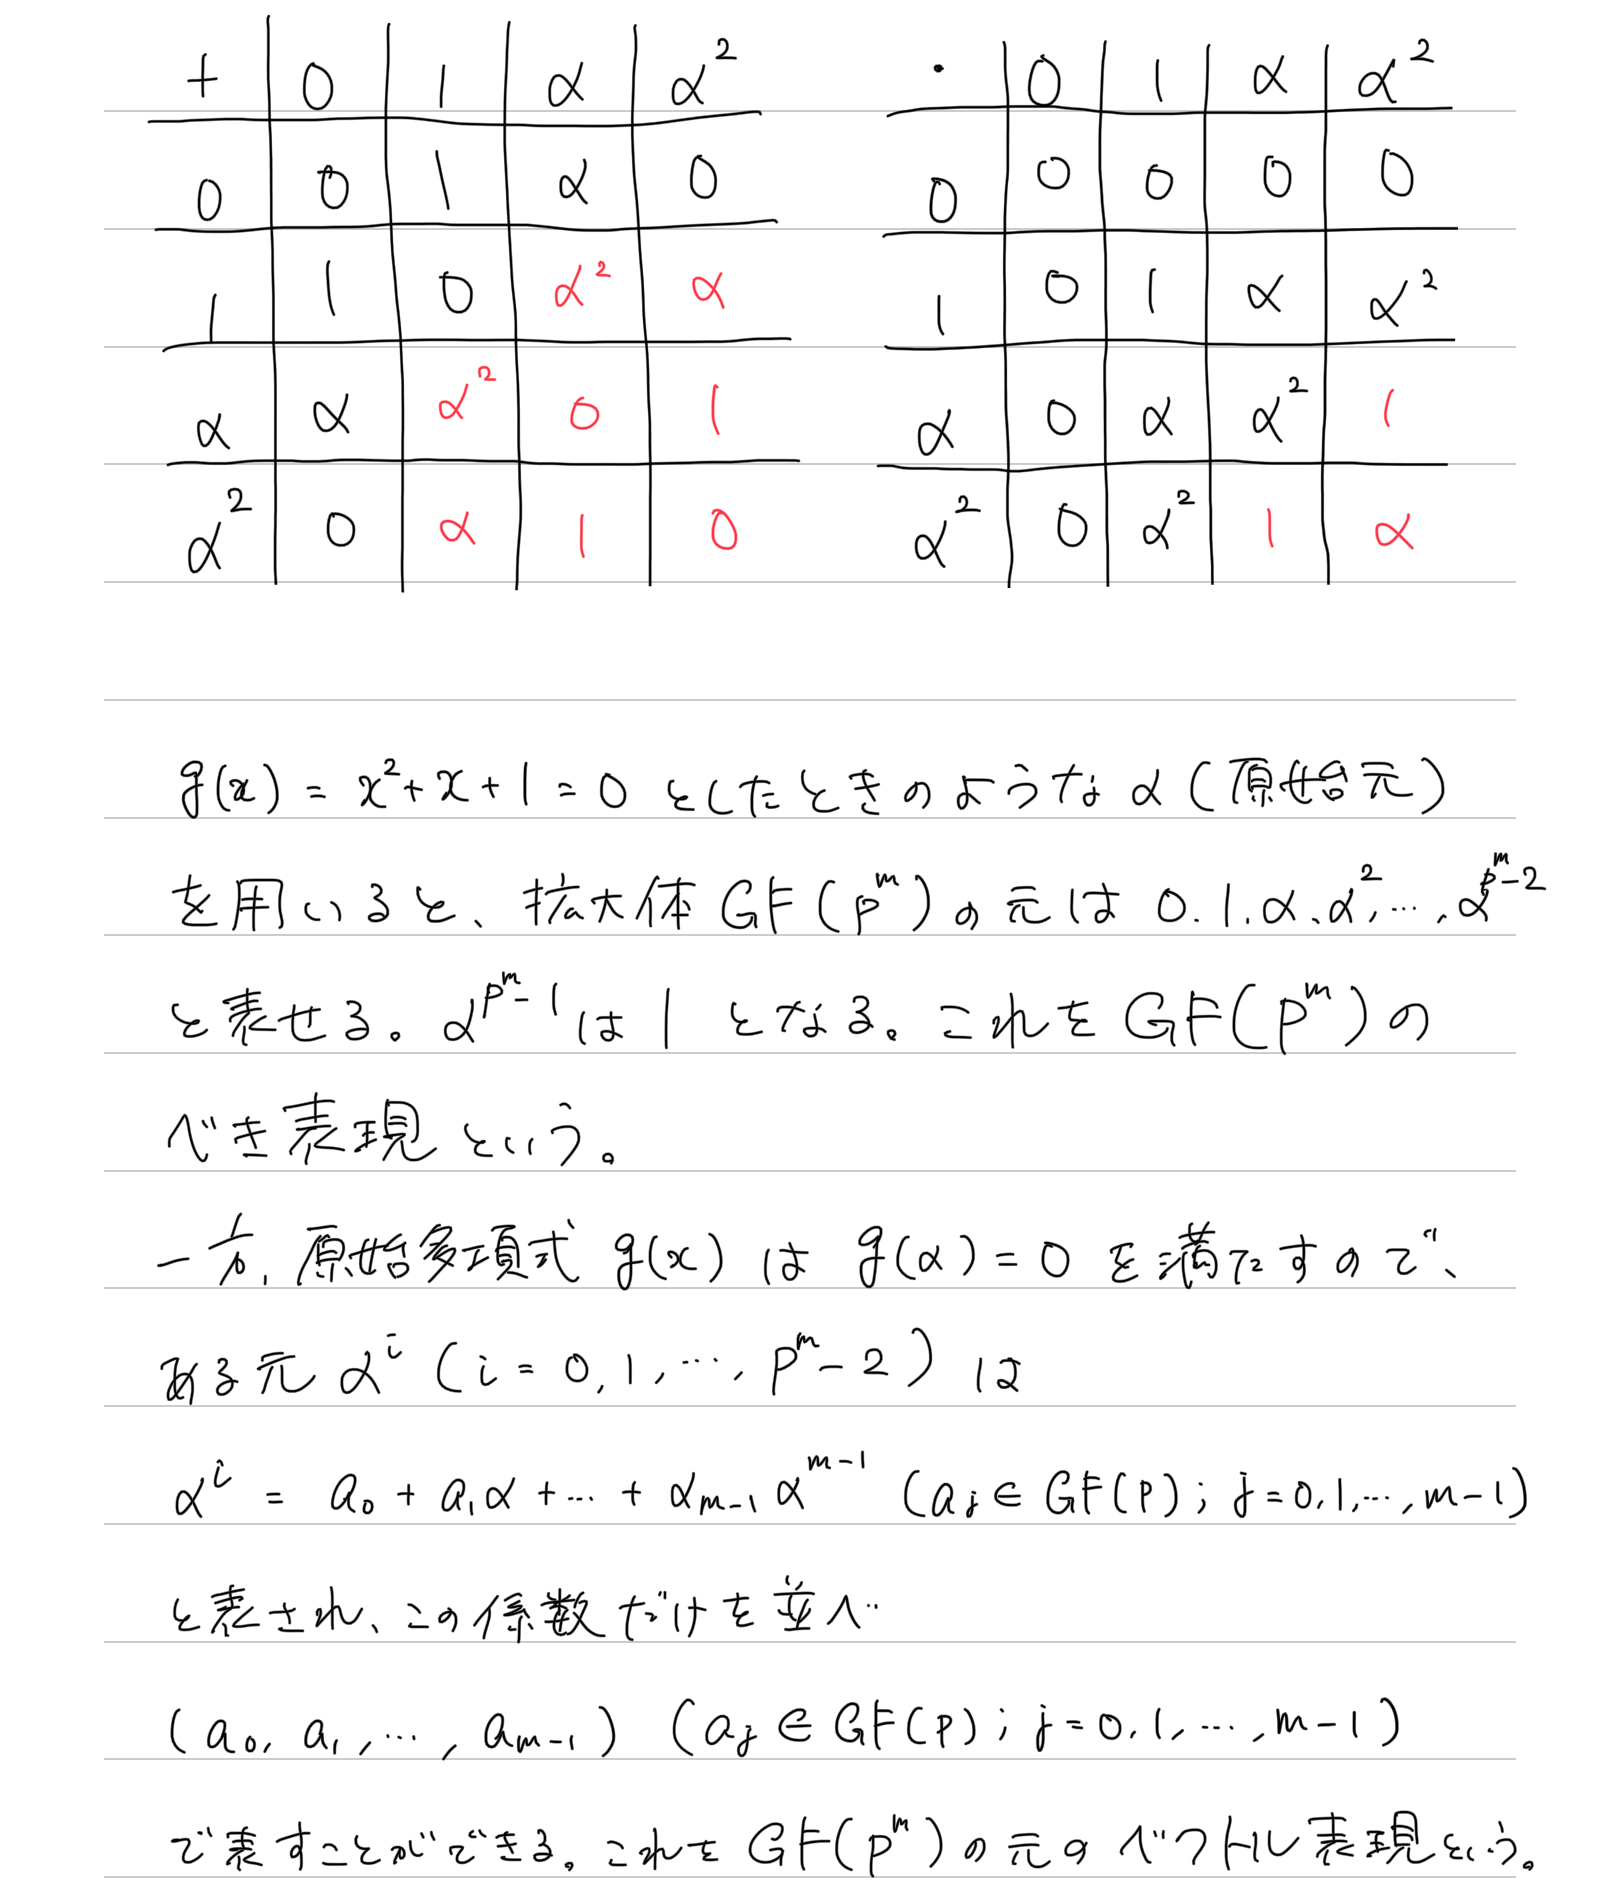 + 0 1 α α²
0 0 1 α 0
1 1 0 α² α
α α α² 0 1
α² 0 α 1 0
· 0 1 α α²
0 0 0 0 0
1 0 1 α α²
α 0 α α² 1
α² 0 α² 1 α
g(x) = x²+x+1=0 としたときのようなα(原始元)
を用いると、拡大体 GF(p^m)の元は 0.1.α、α²,…,α^{p^m-2}
と表せる。α^{p^m-1}は1となる。これをGF(p^m)の
べき表現という。
一方,原始多項式 g(x) は g(α)=0 を満たすので、
ある元 α^i (i=0,1,…,p^m-2) は
α^i = a₀+a₁α+…+α_{m-1}α^{m-1} (a_j∈GF(p);j=0,1,…,m-1)
と表され、この係数だけを並べ
(a₀,a₁,…,a_{m-1}) (a_j∈GF(p);j=0,1,…,m-1)
で表すことができる。これをGF(p^m)の元のベクトル表現という。